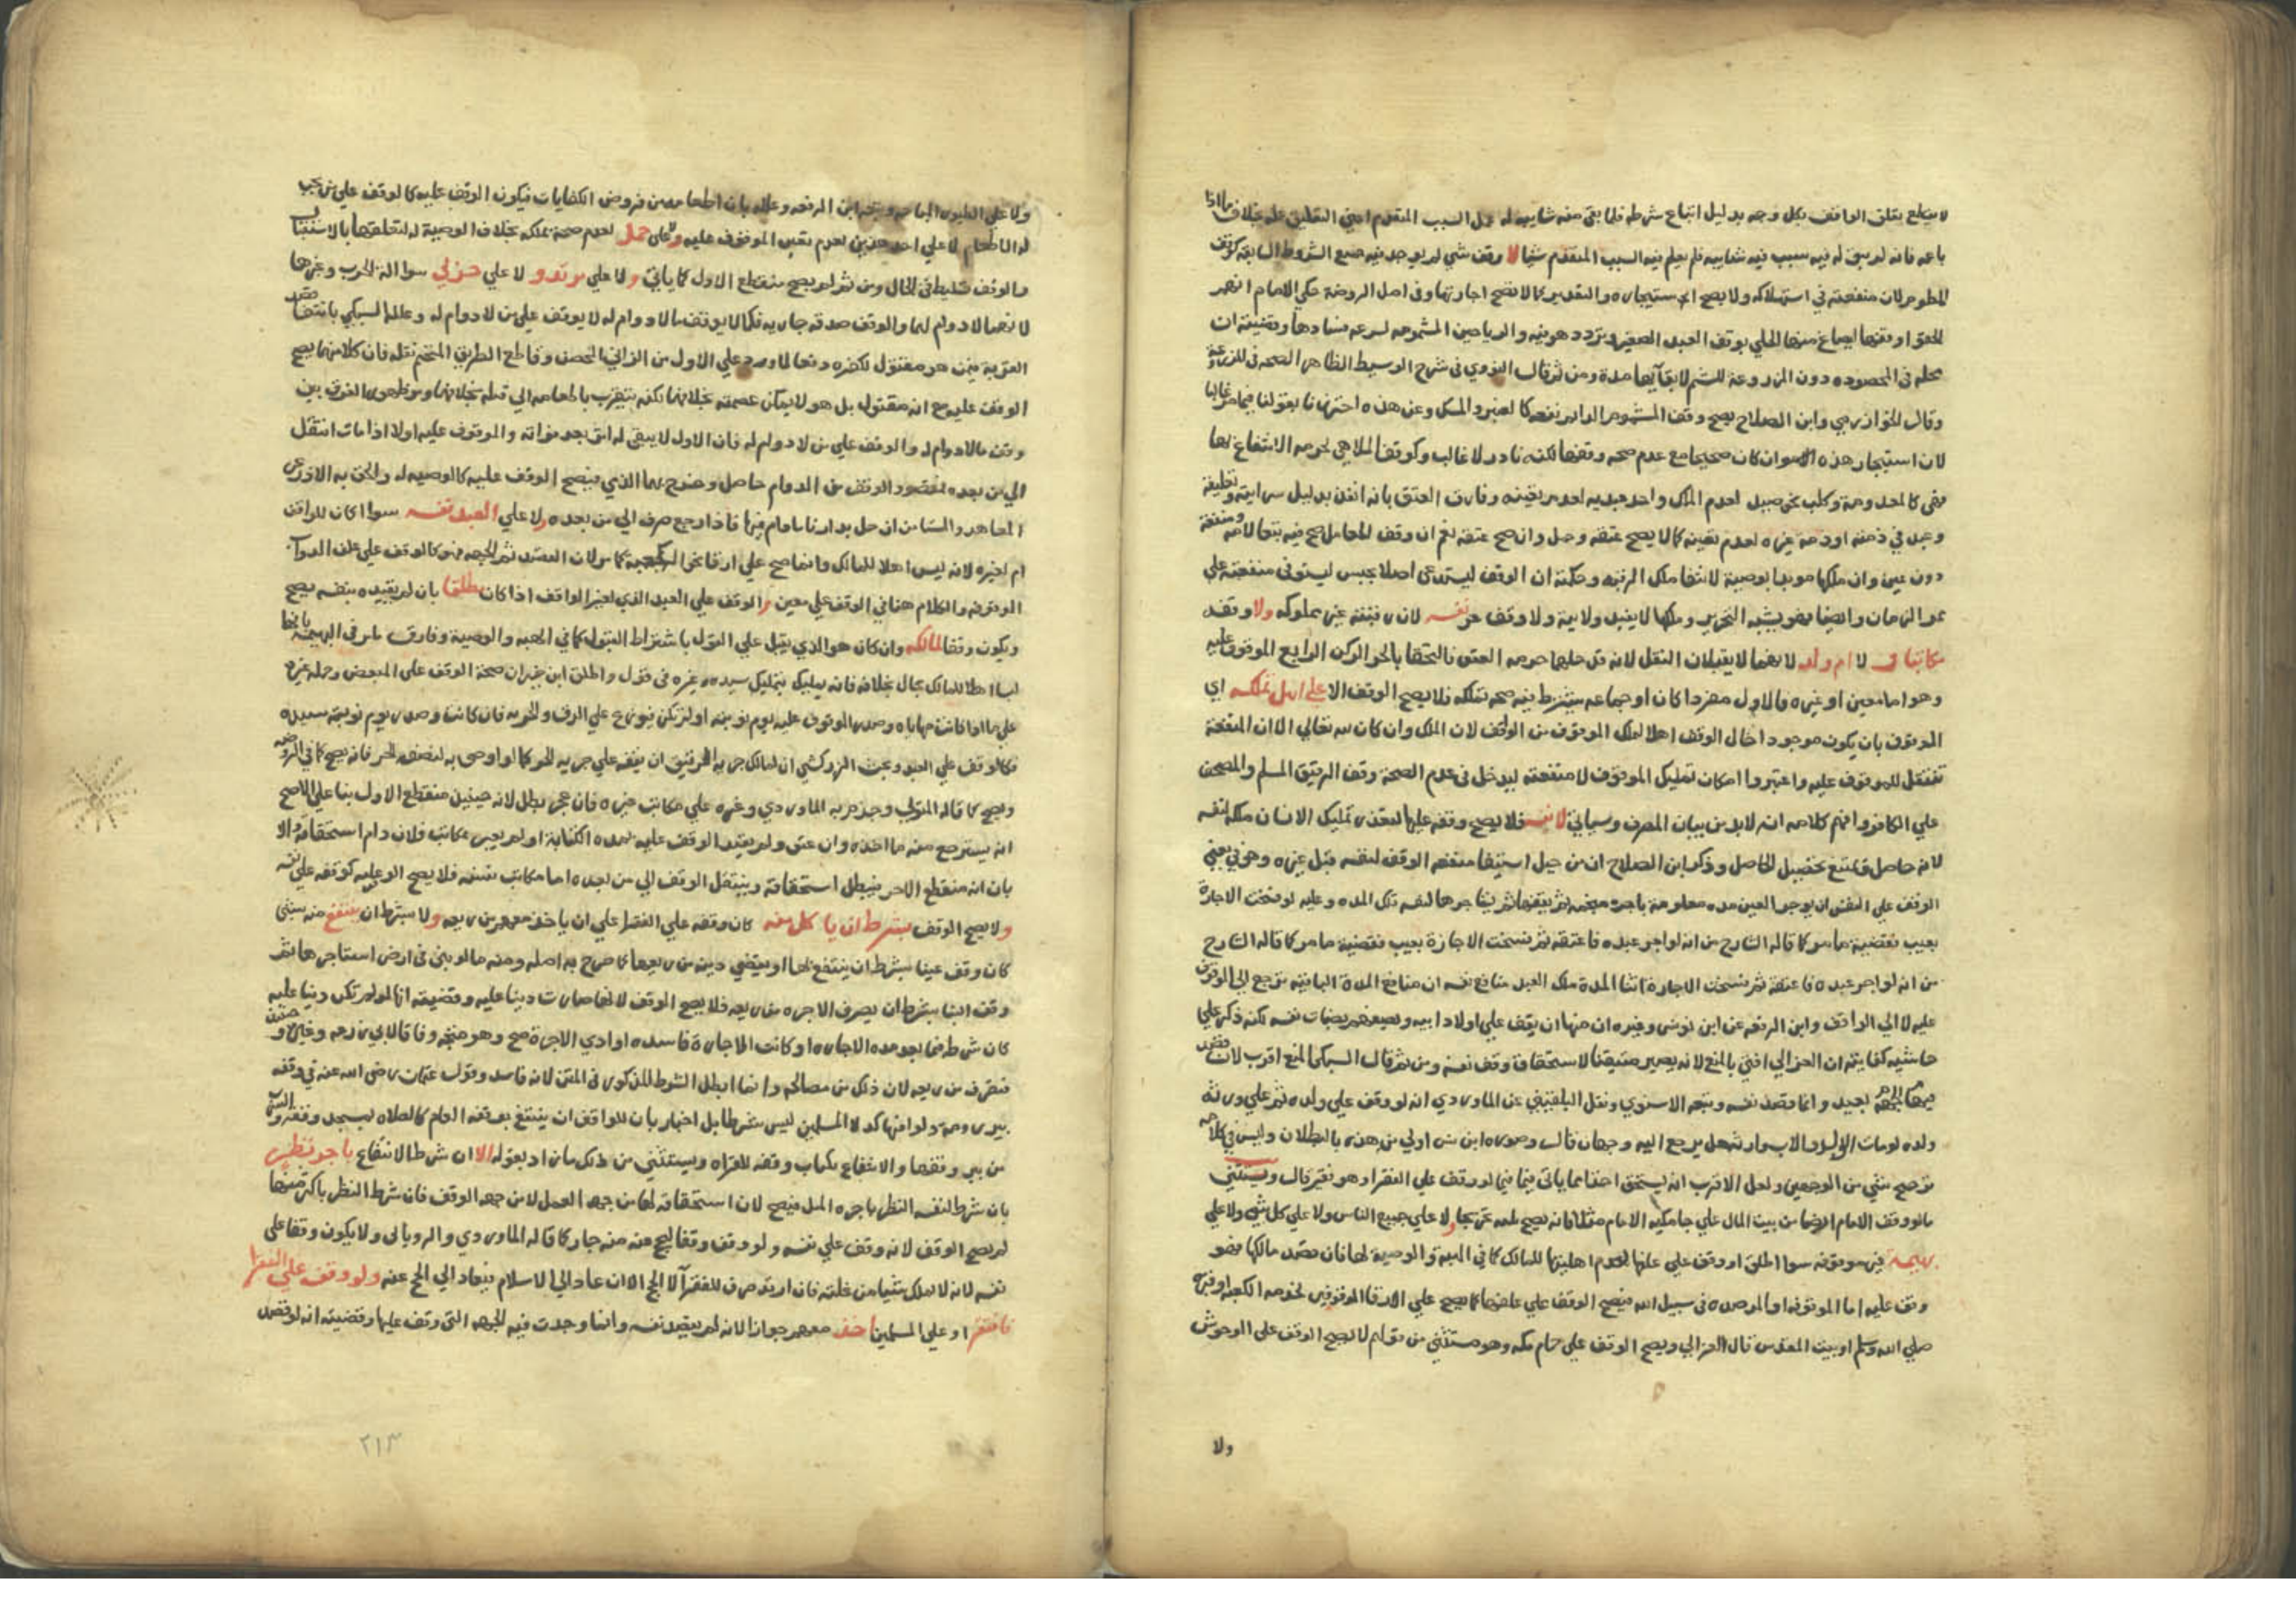 لا ينقطع تعلق الواقف بكل وجه بدليل اتباع شرطه فلما بقي منه شايبه له عمل السبب المتقدم اعني التعليق عمله بخلاف ما لو اذا
باعه فانه لم يبق له فيه سبب فيه شايبه فلم يعلم فيه السبب المتقدم شيا لا وقف شي لم يوجد فيه جميع الشروط السابقه كوقف
المطعوم لان منفعته في استهلاكه ولا يصح الاستيجاره والنقدين كما لا تصح اجارتها وفي اصل الروضة حكي الامام انهم
الحقوا وقفها ليصاغ منها الحلي بوقف العبد الصغير وتردد هو فيه والرياحين المشمومه لسرعه فسادها وقضيته ان
محله في المحصوده دون المزروعة للشم لابقايها مدة ومن ثم قال النووي في شرح الوسيط الظاهر الصحه في المزروعة
وقال الخوارزمي وابن الصلاح يصح وقف المشموم الدايم نفعه كالعنبر والمسك وعن هذه احترزنا بقولنا فيما مر غالبا
لان استيجار هذه الامور ان كان صحيحا مع عدم صحه وقفها لكنه نادر لا غالب وكوقف الملاهي لحرمه الانتفاع بها
فهي كالمعدومة وكلب نحو صيد لعدم الملك واحد عبديه لعدم تعينه وفارق العتق بانه انفذ بدليل سرايته وتعليقه
وعبد في ذمته او ذمة غيره لعدم تعينه كما لا يصح عتقه وحمل وان صح عتقه نعم ان وقف الحامل صح فيه تبعا لامه ومنفعة
دون عين وان ملكها موبدا بوصية لانتفا ملك الرقبه وحكمة ان الوقف ليستدعي اصلا يحبس ليستوفى منفعته علي
ممر الزمان وايضا فهو يشبه التحرير وملكها لا يفيد ولاية ولا وقف حر نفسه لان رقبته غير مملوكه ولا وقف
مكاتبا و لا ام ولد لانهما لا يقبلان النقل لانه قد حلهما حرمه العتق فالتحقا بالحر الركن الرابع الموقوف عليه
وهو اما معين او غيره فالاول مفردا كان او جماعه يشترط فيه صحه تملكه فلا يصح الوقف الا علي اهل تملكه اي
الموقوف بان يكون موجودا حال الوقف اهلا لملك الموقوف من الواقف لان الملك وان كان لله تعالي الا ان المنفعة
تنتقل للموقوف عليه واعتبروا امكان تمليك الموقوف لا منفعته ليدخل في عدم الصحة وقف الرقيق المسلم والمصحف
علي الكافر وافهم كلامه انه لابد من بيان المصرف وسياتي لا نفسه فلا يصح وقفه عليها لتعذر تمليك الانسان ملكه لنفسه
لانه حاصل ويمتنع تحصيل الحاصل وذكر ابن الصلاح ان من حيل استيفا منفعه الوقف لنفسه قبل غيره وهو في معني
الوقف علي النفس ان يوجر العين مده معلومة باجرة منجمه ثم يقفها ثم يستاجرها لنفسه تلك المده وعليه لو فسخت الاجارة
بعيب فقضية ما مر كما قاله الشارح من انه لو اجر عبده فاعتقه ثم فسخت الاجارة بعيب فقضية ما مر كما قاله الشارح
من انه لو اجر عبده فاعتقه ثم فسخت الاجارة اثنا المدة ملك العبد منافع نفسه ان منافع المدة الباقيه ترجع الي الموقوف
عليه لا الي الواقف وابن الرفعه عن ابن يونس وغيره ان منها ان يقف علي اولاد ابيه ويصفهم بصفات نفسه لكنه ذكر علي
حاشيه كفايته ان الغزالي افتي بالمنع لانه يصير ضيقا لاستحقاق وقف نفسه ومن ثم قال السبكي المنع اقرب لانه قصد
الجهه بعيد وانما قصد نفسه وبتعه الاسنوي ونقل البلقيني عن الماوردي انه لو وقف علي ولده ثم علي ورثة
ولده ثم مات الولد والاب وارثه هل يرجع اليه وجهان قال وصوره ابن سريج اولي من هذه بالبطلان وليس في كلامه
ترجيح شي من الوجهين ولعل الاقرب انه يستحق اخذا مما ياتي فيما لو وقف علي الفقرا وهو فقير قال ويستثني
ما لو وقف الامام ارضا من بيت المال علي جامكيه الامام مثلا فانه يصح لا علي جميع الناس ولا علي كل شي ولا علي
بهيمة غير موقوفه سوا اطلق او وقف علي علفها لعدم اهليتها للملك كما في الهبه والوصية لها فان قصد مالكها فهو
وقف عليه اما الموقوفه او المرصده في سبيل الله فيصح الوقف علي علفها كما يصح علي الارقا الموقوفين لخدمه الكعبه او قبره
صلي الله عليه وسلم او بيت المقدس قال الغزالي ويصح الوقف علي حمام مكه وهو مستثني من قولهم لا يصح الوقف علي الوحوش
ولا
ولا علي الطيور المباحه وبحث ابن الرفعه وعلله بان اطعامهن من فروض الكفايات فيكون الوقف عليه كالوقف علي من يجب
له الاطعام لا علي احد هذين لعدم تعين الموقوف عليه ولا علي حمل لعدم صحة تملكه بخلاف الوصية له لتعلقها بالاستقبال
والوقف تسليط في الحال ومن ثم لم يصح منقطع الاول كما ياتي ولا علي مرتد و لا علي حربي سوا الة الحرب وغيرها
لانهما لا دوام لهما والوقف صدقه جاريه فكما لا يوقف ما لا دوام له لا يوقف علي من لا دوام له وعلله السبكي بانتفا قصد
القربة فيمن هو مقتول لكفره دفعا لما ورد علي الاول من الزاني المحصن وقاطع الطريق المتحتم قتله فان كلا منهما يصح
الوقف عليه مع انه مقتول بل هو لا يمكن عصمته بخلافهما لكنه يتقرب باطعامه الي قتله بخلافهما ومن ظهور الفرق بين
وقف ما لا دوام له والوقف علي من لا دوام له فان الاول لا يبقي له اثر بعد فواته والموقوف عليه اولا اذا مات انتقل
الي من بعده فمقصود الوقف من الدوام حاصل وخرج بهما الذي فيصح الوقف عليه كالوصيه له والحق به الاذرعي
المعاهد والمستامن ان حل بدارنا ما دام فيها فاذا رجع صرف الي من بعده ولا علي العبد نفسه سوا اكان للواقف
ام لغيره لانه ليس اهلا للملك وانما صح علي ارقا نحو الكعبة كما مر لان القصد ثم الجهه فهو كالوقف علي علف الدواب
الموقوفه والكلام هنا في الوقف علي معين والوقف علي العبد الذي لغير الواقف اذا كان مطلقا بان لم يقيده بنفسه يصح
ويكون وقفا لمالكه وان كان هو الذي يقبل علي القول باشتراط القبول كما في الهبه والوصية وفارق ما مر في البهيمة بانها
ليست اهلا للملك بحال بخلافه فانه يملك بتمليك سيده وغيره في قول واطلق ابن خيران صحة الوقف علي المبعض وحمله غيره
علي ما اذا كانت مهاياه وصدر الموقوف عليه يوم نوبته او لم تكن فيوزع علي الرق والحريه فان كانت وصدر يوم نوبة سيده
فكالوقف علي العبد وبحث الزركشي ان لمالك جزيه الرقيق ان يقفه علي جزيه الحر كما لو اوصي به لنصفه الحر فانه يصح كما في الروضه
ويصح كما قاله المتولي وجزم به الماوردي وغيره علي مكاتب غيره فان عجز بطل لانه حينيذ منقطع الاول بنا علي الاصح
انه يسترجع منه ما اخذه وان عتق ولم يقيد الوقف عليه بمده الكتابة او لم يعبر بمكاتب فلان دام استحقاقه والا
بان انه منقطع الاخر فيبطل استحقاقه وينتقل الوقف الي من بعده اما مكاتب نفسه فلا يصح الوقف عليه كوقفه علي نفسه
ولا يصح الوقف بشرط ان ياكل منه كان وقفه علي الفقرا علي ان ياخذ معهم من ريعه ولا بشرط ان ينتفع منه بشي
كان وقف عينا بشرط ان ينتفع بها او يقضي دينه من ريعها كما صرح به اصله ومنه ما لو بني في ارض استاجرها ثم
وقف البنا بشرط ان يصرف الاجره من ريعه فلا يصح الوقف لانها صارت دينا عليه وقضيته انها لو لم تكن دينا عليه
كان شرطه فيما بعد مده الاجاره او كانت الاجاره فاسده او ادي الاجرة صح وهو متجه وفاقا لابي زرعه وغيره
فتصرف من ريعه لان ذلك من مصالحه وانما ابطل الشرط المذكور في المتن لانه فاسد وقول عثمان رضي الله عنه في وقفه
بير رومة دلوي فيها كدلا المسلمين ليس شرطا بل اخبار بان للواقف ان ينتفع بوقفه العام كالصلاه بمسجد وقفه والشرب
من بير وقفها والانتفاع بكتاب وقفه للقراه ويستثني من ذلك ما زاد بقوله الا ان شرط الانتفاع باجر نظير
بان شرط لنفسه النظر باجره المثل فيصح لان استحقاقه لها من جهه العمل لا من جهه الوقف فان شرط النظر باكثر منها
لم يصح الوقف لانه وقف علي نفسه ولو وقف وقفا ليحج عنه منه جاز كما قاله الماوردي والروياني ولا يكون وقفا علي
نفسه لانه لا يملك شيا من غلته فان ارتد صرف للفقرا لا الحج الا ان عاد الي الاسلام فيعاد الي الحج عنه ولو وقف علي الفقرا
فافتقر او علي المسلمين اخذ معهم جوازا لانه لم يقيد نفسه وانما وجدت فيه الجهه التي وقف عليها وقضيته انه لو قصد
٢١٣